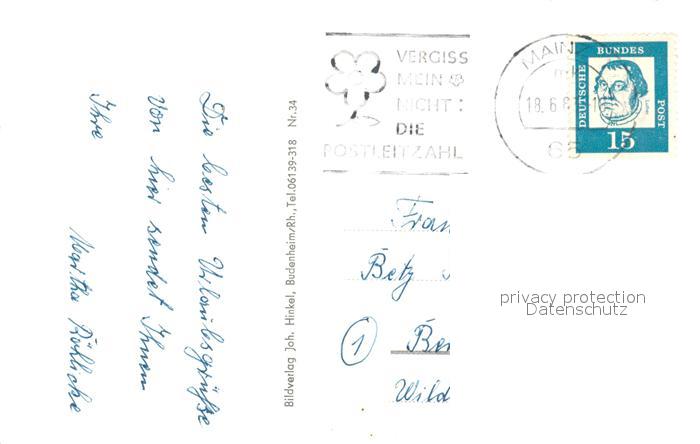 Die besten Urlaubsgrüße
von hier sendet Ihnen
Ihre
Bildverlag Joh. Hinkel, Budenheim/Rh., Tel. 06139-318 Nr. 34
VERGISS
MEIN
NICHT:
DIE
POSTLEITZAHL
MAINZ
18.6.6
65
DEUTSCHE BUNDESPOST
15
Frau
Betz
1 Ber
Wild
privacy protection
Datenschutz